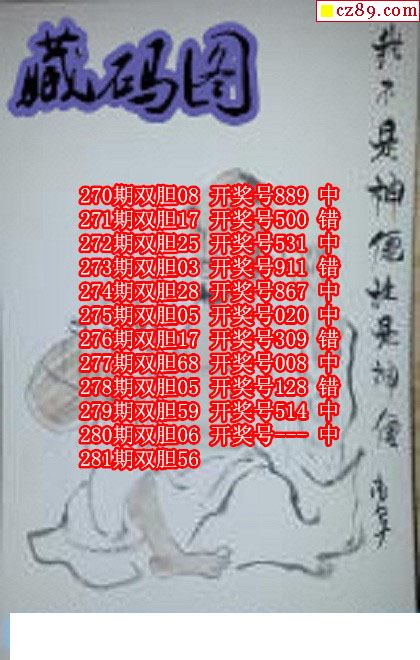 cz89.com
藏码图
270期双胆08 开奖号889 中
271期双胆17 开奖号500 错
272期双胆25 开奖号531 中
273期双胆03 开奖号911 错
274期双胆28 开奖号867 中
275期双胆05 开奖号020 中
276期双胆17 开奖号309 错
277期双胆68 开奖号008 中
278期双胆05 开奖号128 错
279期双胆59 开奖号514 中
280期双胆06 开奖号--- 中
281期双胆56
我不是神
是神